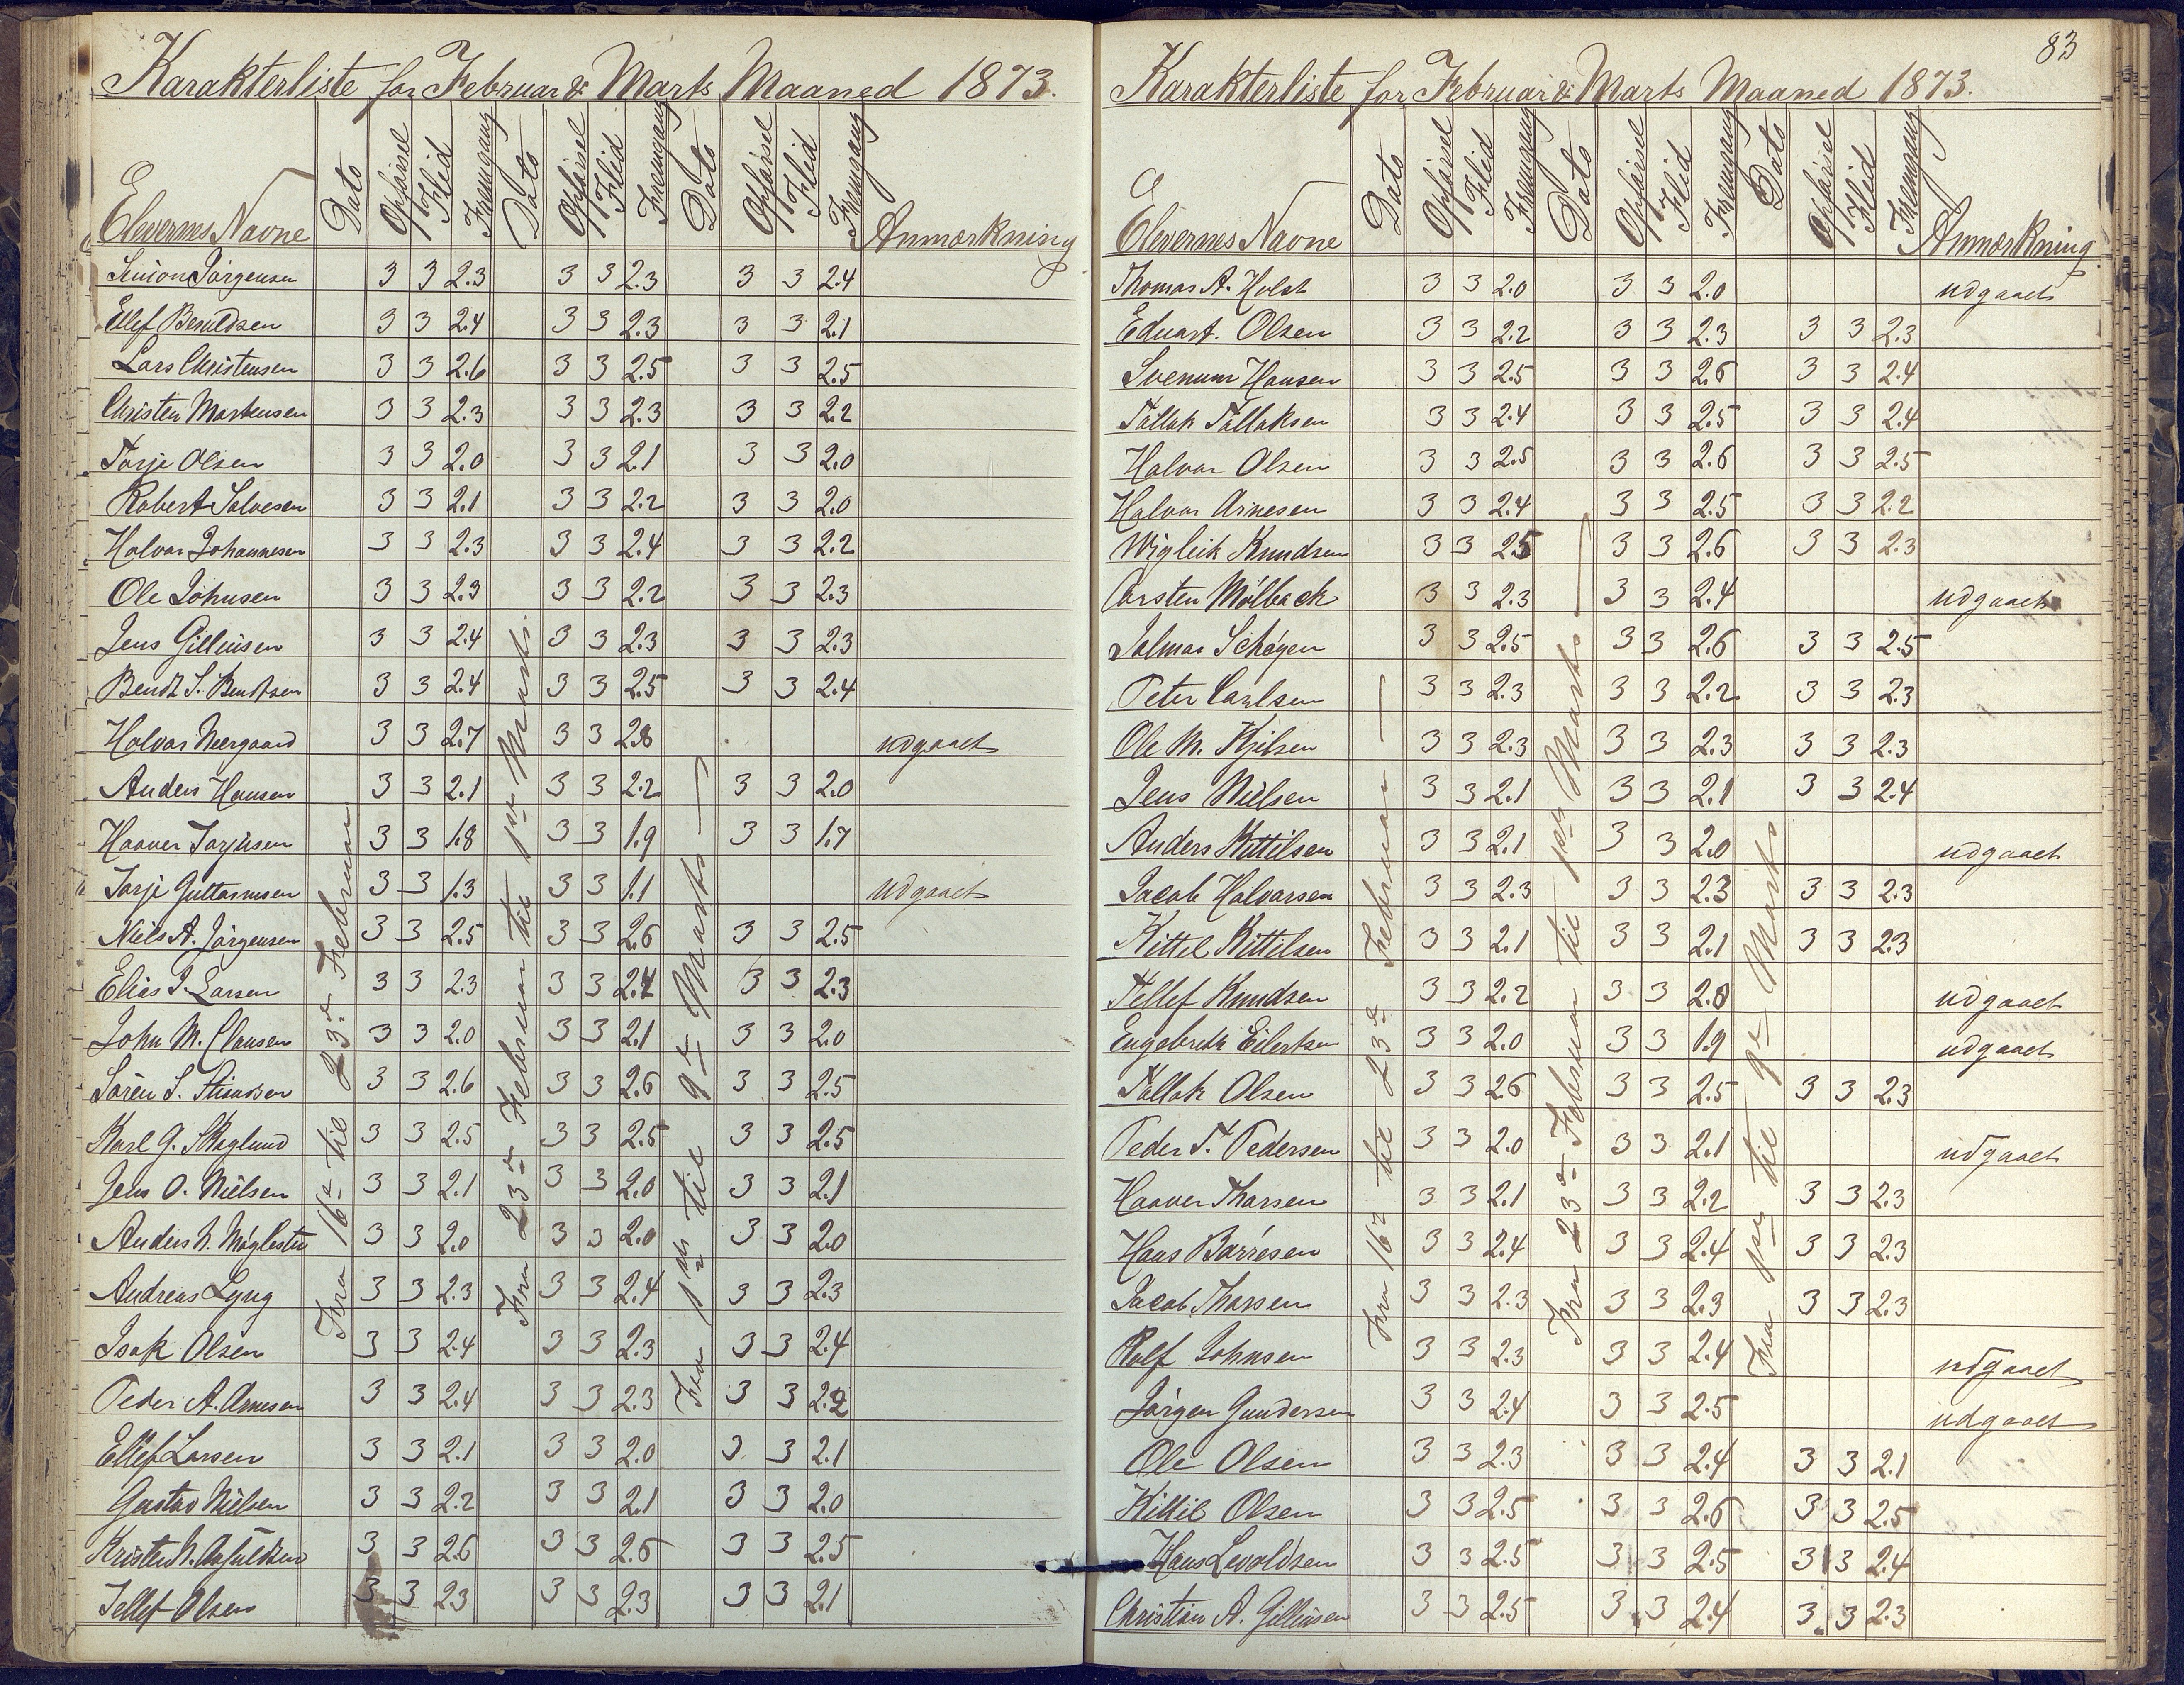 Karakterliste for Februar & Marts Maaned 1873.
Elevernes Navne Dato Opførsel Flid Fremgang Dato Opførsel Flid Fremgang Dato Opførsel Flid Fremgang Anmærkning
Fra 16de til 23de Februar
Fra 23de Februar til 1ste Marts
Fra 1ste til 9de Marts
Simon Jørgensen 3 3 2.3 3 3 2.3 3 3 2.4
Ellef Bentdsen 3 3 2.4 3 3 2.3 3 3 2.1
Lars Christensen 3 3 2.6 3 3 2.5 3 3 2.5
Christen Mortensen 3 3 2.3 3 3 2.3 3 3 2.2
Torje Olsen 3 3 2.0 3 3 2.1 3 3 2.0
Robert Salvesen 3 3 2.1 3 3 2.2 3 3 2.0
Halvor Johannesen 3 3 2.3 3 3 2.4 3 3 2.2
Ole Johnsen 3 3 2.3 3 3 2.2 3 3 2.3
Jens Gilleusen 3 3 2.4 3 3 2.3 3 3 2.3
Bendt S. Bendtsen 3 3 2.4 3 3 2.5 3 3 2.4
Halvor Neergaard 3 3 2.7 3 3 2.8 udgaaet
Anders Hansen 3 3 2.1 3 3 2.2 3 3 2.0
Haaver Torjusen 3 3 1.8 3 3 1.9 3 3 1.7
Torje Guttormsen 3 3 1.3 3 3 1.1 udgaaet
Niels A. Jørgensen 3 3 2.5 3 3 2.6 3 3 2.5
Elias J. Larsen 3 3 2.3 3 3 2.4 3 3 2.3
John M. Clausen 3 3 2.0 3 3 2.1 3 3 2.0
Søren S. 3 3 2.6 3 3 2.6 3 3 2.5
Karl G. Skoglund 3 3 2.5 3 3 2.5 3 3 2.5
Jens O. Nielsen 3 3 2.1 3 3 2.0 3 3 2.1
Anders N. Møglestu 3 3 2.0 3 3 2.0 3 3 2.0
Andreas Lyng 3 3 2.3 3 3 2.4 3 3 2.3
Isak Olsen 3 3 2.4 3 3 2.3 3 3 2.4
Peder A. Arnesen 3 3 2.4 3 3 2.3 3 3 2.2
Ellef Larsen 3 3 2.1 3 3 2.0 3 3 2.1
Gustav Nielsen 3 3 2.2 3 3 2.1 3 3 2.0
Kristen N. 3 3 2.6 3 3 2.6 3 3 2.5
Tellef Olsen 3 3 2.3 3 3 2.3 3 3 2.1
83
Karakterliste for Februar & Marts Maaned 1873.
Elevernes Navne Dato Opførsel Flid Fremgang Dato Opførsel Flid Fremgang Dato Opførsel Flid Fremgang Anmærkning
Fra 16de til 23de Februar
Fra 23de Februar til 1ste Marts
Fra 1ste til 9de Marts
Thomas A. Holst 3 3 2.0 3 3 2.0 udgaaet
Eduart. Olsen 3 3 2.2 3 3 2.3 3 3 2.3
Svenum Hansen 3 3 2.5 3 3 2.6 3 3 2.4
Tallak Tallaksen 3 3 2.4 3 3 2.5 3 3 2.4
Halvor Olsen 3 3 2.5 3 3 2.6 3 3 2.5
Halvor Arnesen 3 3 2.4 3 3 2.5 3 3 2.2
Wigleik Knudsen 3 3 2.5 3 3 2.6 3 3 2.3
Carsten Mølback 3 3 2.3 3 3 2.4 udgaaet
Jalmar Schøyen 3 3 2.5 3 3 2.6 3 3 2.5
Peter Carlsen 3 3 2.3 3 3 2.2 3 3 2.3
Ole M. Kjilsen 3 3 2.3 3 3 2.3 3 3 2.3
Jens Nielsen 3 3 2.1 3 3 2.1 3 3 2.4
Anders Kittilsen 3 3 2.1 3 3 2.0 udgaaet
Jacob Halvorsen 3 3 2.3 3 3 2.3 3 3 2.3
Kittel Kittilsen 3 3 2.1 3 3 2.1 3 3 2.3
Tellef Knudsen 3 3 2.2 3 3 2.0 udgaaet
Engebreth Eilertsen 3 3 2.0 3 3 1.9 udgaaet
Tallak Olsen 3 3 2.6 3 3 2.5 3 3 2.3
Peder T. Pedersen 3 3 2.0 3 3 2.1 udgaaet
Haaver Tharsen 3 3 2.1 3 3 2.2 3 3 2.3
Hans Barresen 3 3 2.4 3 3 2.4 3 3 2.3
Jacob Tharsen 3 3 2.3 3 3 2.3 3 3 2.3
Rolf Johnsen 3 3 2.3 3 3 2.4 udgaaet
Jørgen Gundersen 3 3 2.4 3 3 2.5 udgaaet
Ole Olsen 3 3 2.3 3 3 2.4 3 3 2.1
Kittil Olsen 3 3 2.5 3 3 2.6 3 3 2.5
Hans Levoldsen 3 3 2.5 3 3 2.5 3 3 2.4
Christian A. Gilleusen 3 3 2.5 3 3 2.4 3 3 2.3